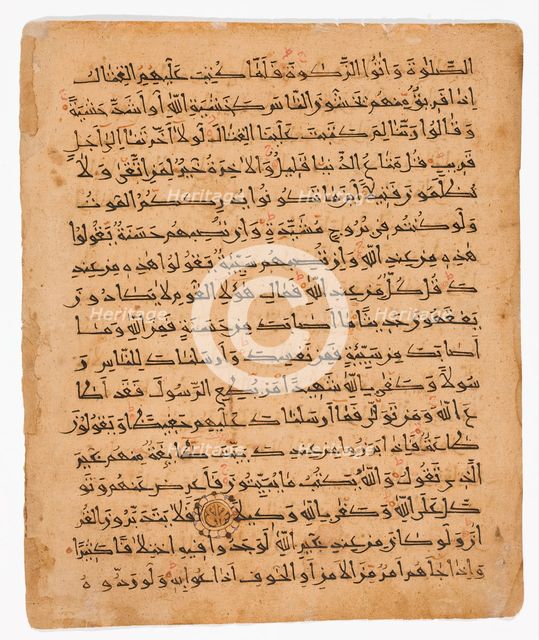 الصلوة واتوا الزكوة فلما كتب عليهم القتال
اذا فريق منهم يخشون الناس كخشية الله او اشد خشية
وقالوا ربنا لم كتبت علينا القتال لولا اخرتنا الى اجل
قريب قل متاع الدنيا قليل والاخرة خير لمن اتقى ولا
تظلمون فتيلا اينما تكونوا يدرككم الموت
ولو كنتم في بروج مشيدة وان تصبهم حسنة يقولوا
هذه من عند الله وان تصبهم سيئة يقولوا هذه من عند
ك قل كل من عند الله فمال هولا القوم لا يكادون
يفقهون حديثا ما اصابك من حسنة فمن الله وما
اصابك من سيئة فمن نفسك وارسلناك للناس ر
سولا وكفى بالله شهيدا من يطع الرسول فقد اطا
ع الله ومن تولى فما ارسلناك عليهم حفيظا ويقولون
طاعة فاذا برزوا من عندك بيت طائفة منهم غير
الذي تقول والله يكتب ما يبيتون فاعرض عنهم وتو
كل على الله وكفى بالله وكيلا افلا يتدبرون القر
ان ولو كان من عند غير الله لوجدوا فيه اختلافا كثيرا
واذا جاهم امر من الامن او الخوف اذاعوا به ولو ردوه